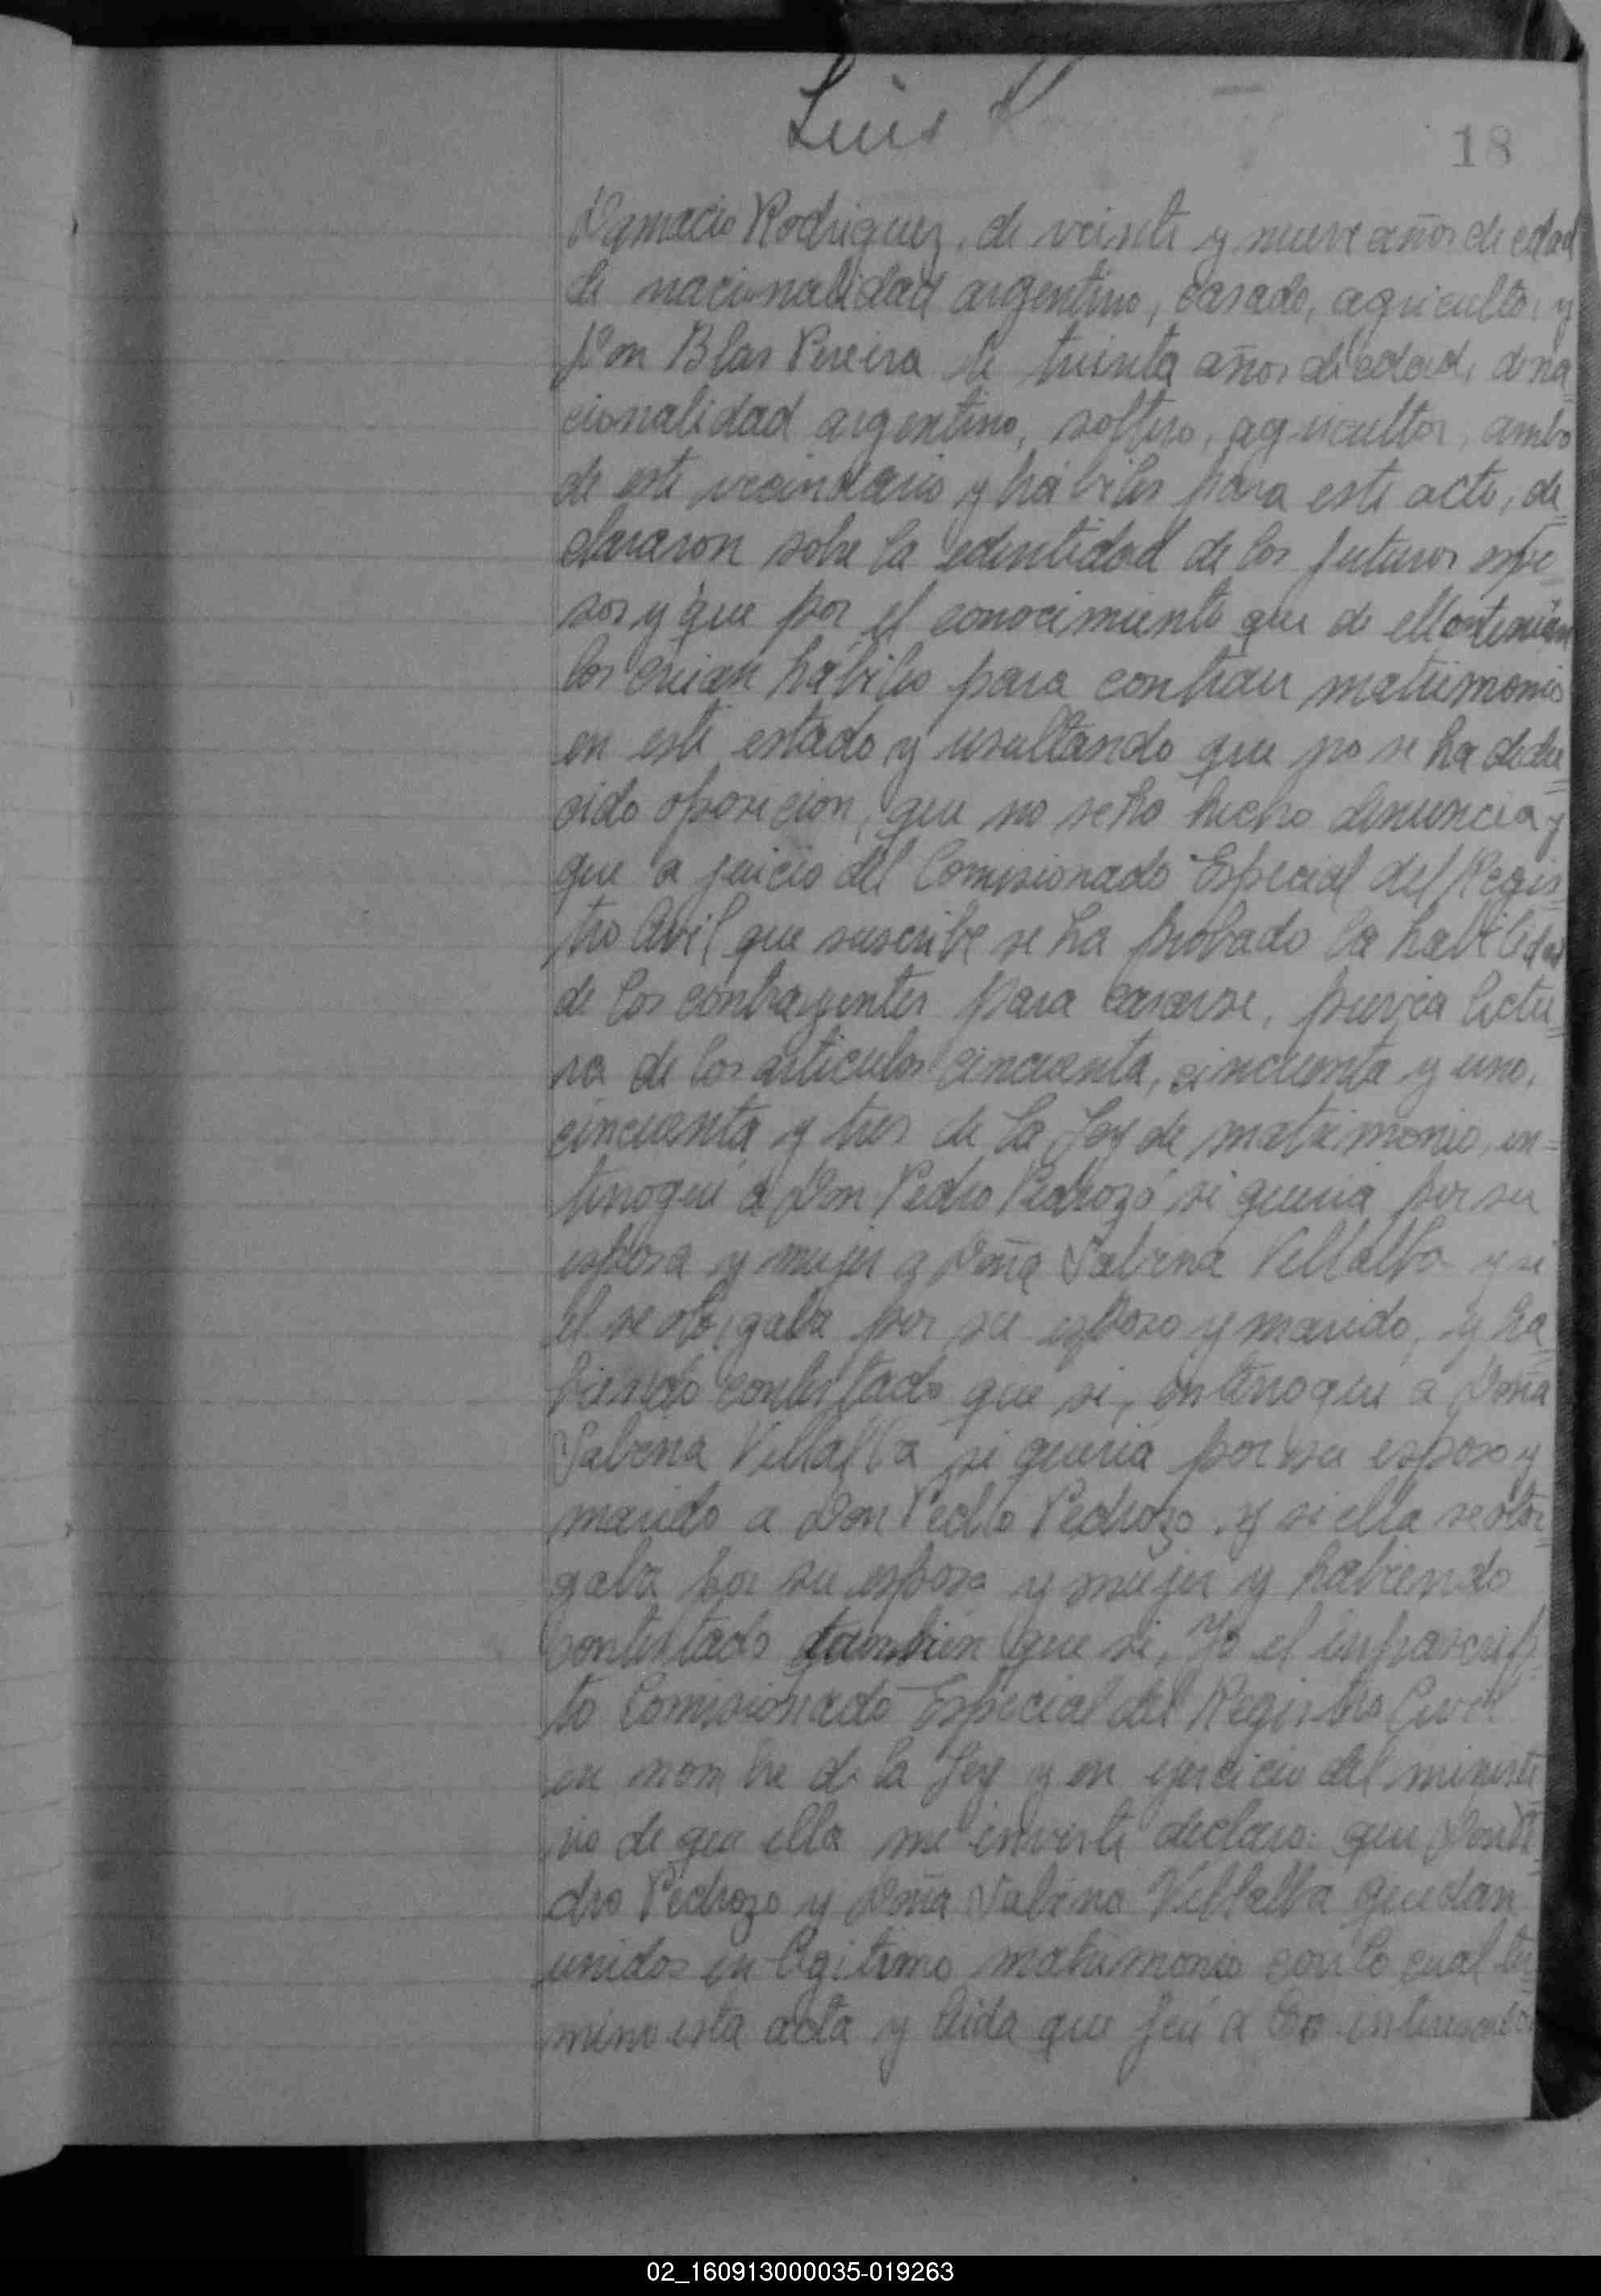 Luis
18
Ygnacio Rodriguez, de veinte y nueve años de edad
de nacionalidad argentino, casado, agricultor, y
Don Blas Pereira de treinta años de edad, de na
cionalidad argentino, soltero, agricultor, ambo
de este vecindario y hábiles para este acto, de=
clararon sobre la edentidad de los futuros espo=
sos y que por el conocimiento que de ellos tenian
los creian hábiles para contraer matrimonio
en este estado y resultando que no se ha dedu=
cido oposicion, que no se ha hecho denuncia y
que a juicio del Comisionado Especial del Regis=
tro Civil que suscribe se ha probado la habilidad
de los contrayentes para casarse, previa lectu=
ra de los articulos cincuenta, cincuenta y uno,
cincuenta y tres de la Ley de matrimonio, in=
terrogué a Don Pedro Pedrozo si queria por su
esposa y mujer a Doña Sabina Villalba y si
el se otorgaba por su esposo y marido, y ha=
biendo contestado que si, interroque a Doña
Sabina Villalba si queria por su esposo y
marido a Don Pedro Pedrozo y si ella se otor=
gaba por su esposa y mujer y habiendo
contestado tambien que si, Yo el infrascrip=
to Comisionado Especial del Registro Civil
en nombre de la Ley y en ejercicio del ministe
rio de que ella me inviste declaro: que Don Pe=
dro Pedrozo y Doña Sabina Villalba quedan
unidos en legitimo matrimonio con lo cual ter=
mino esta acta y leida que fué a los
02_160913000035-019263